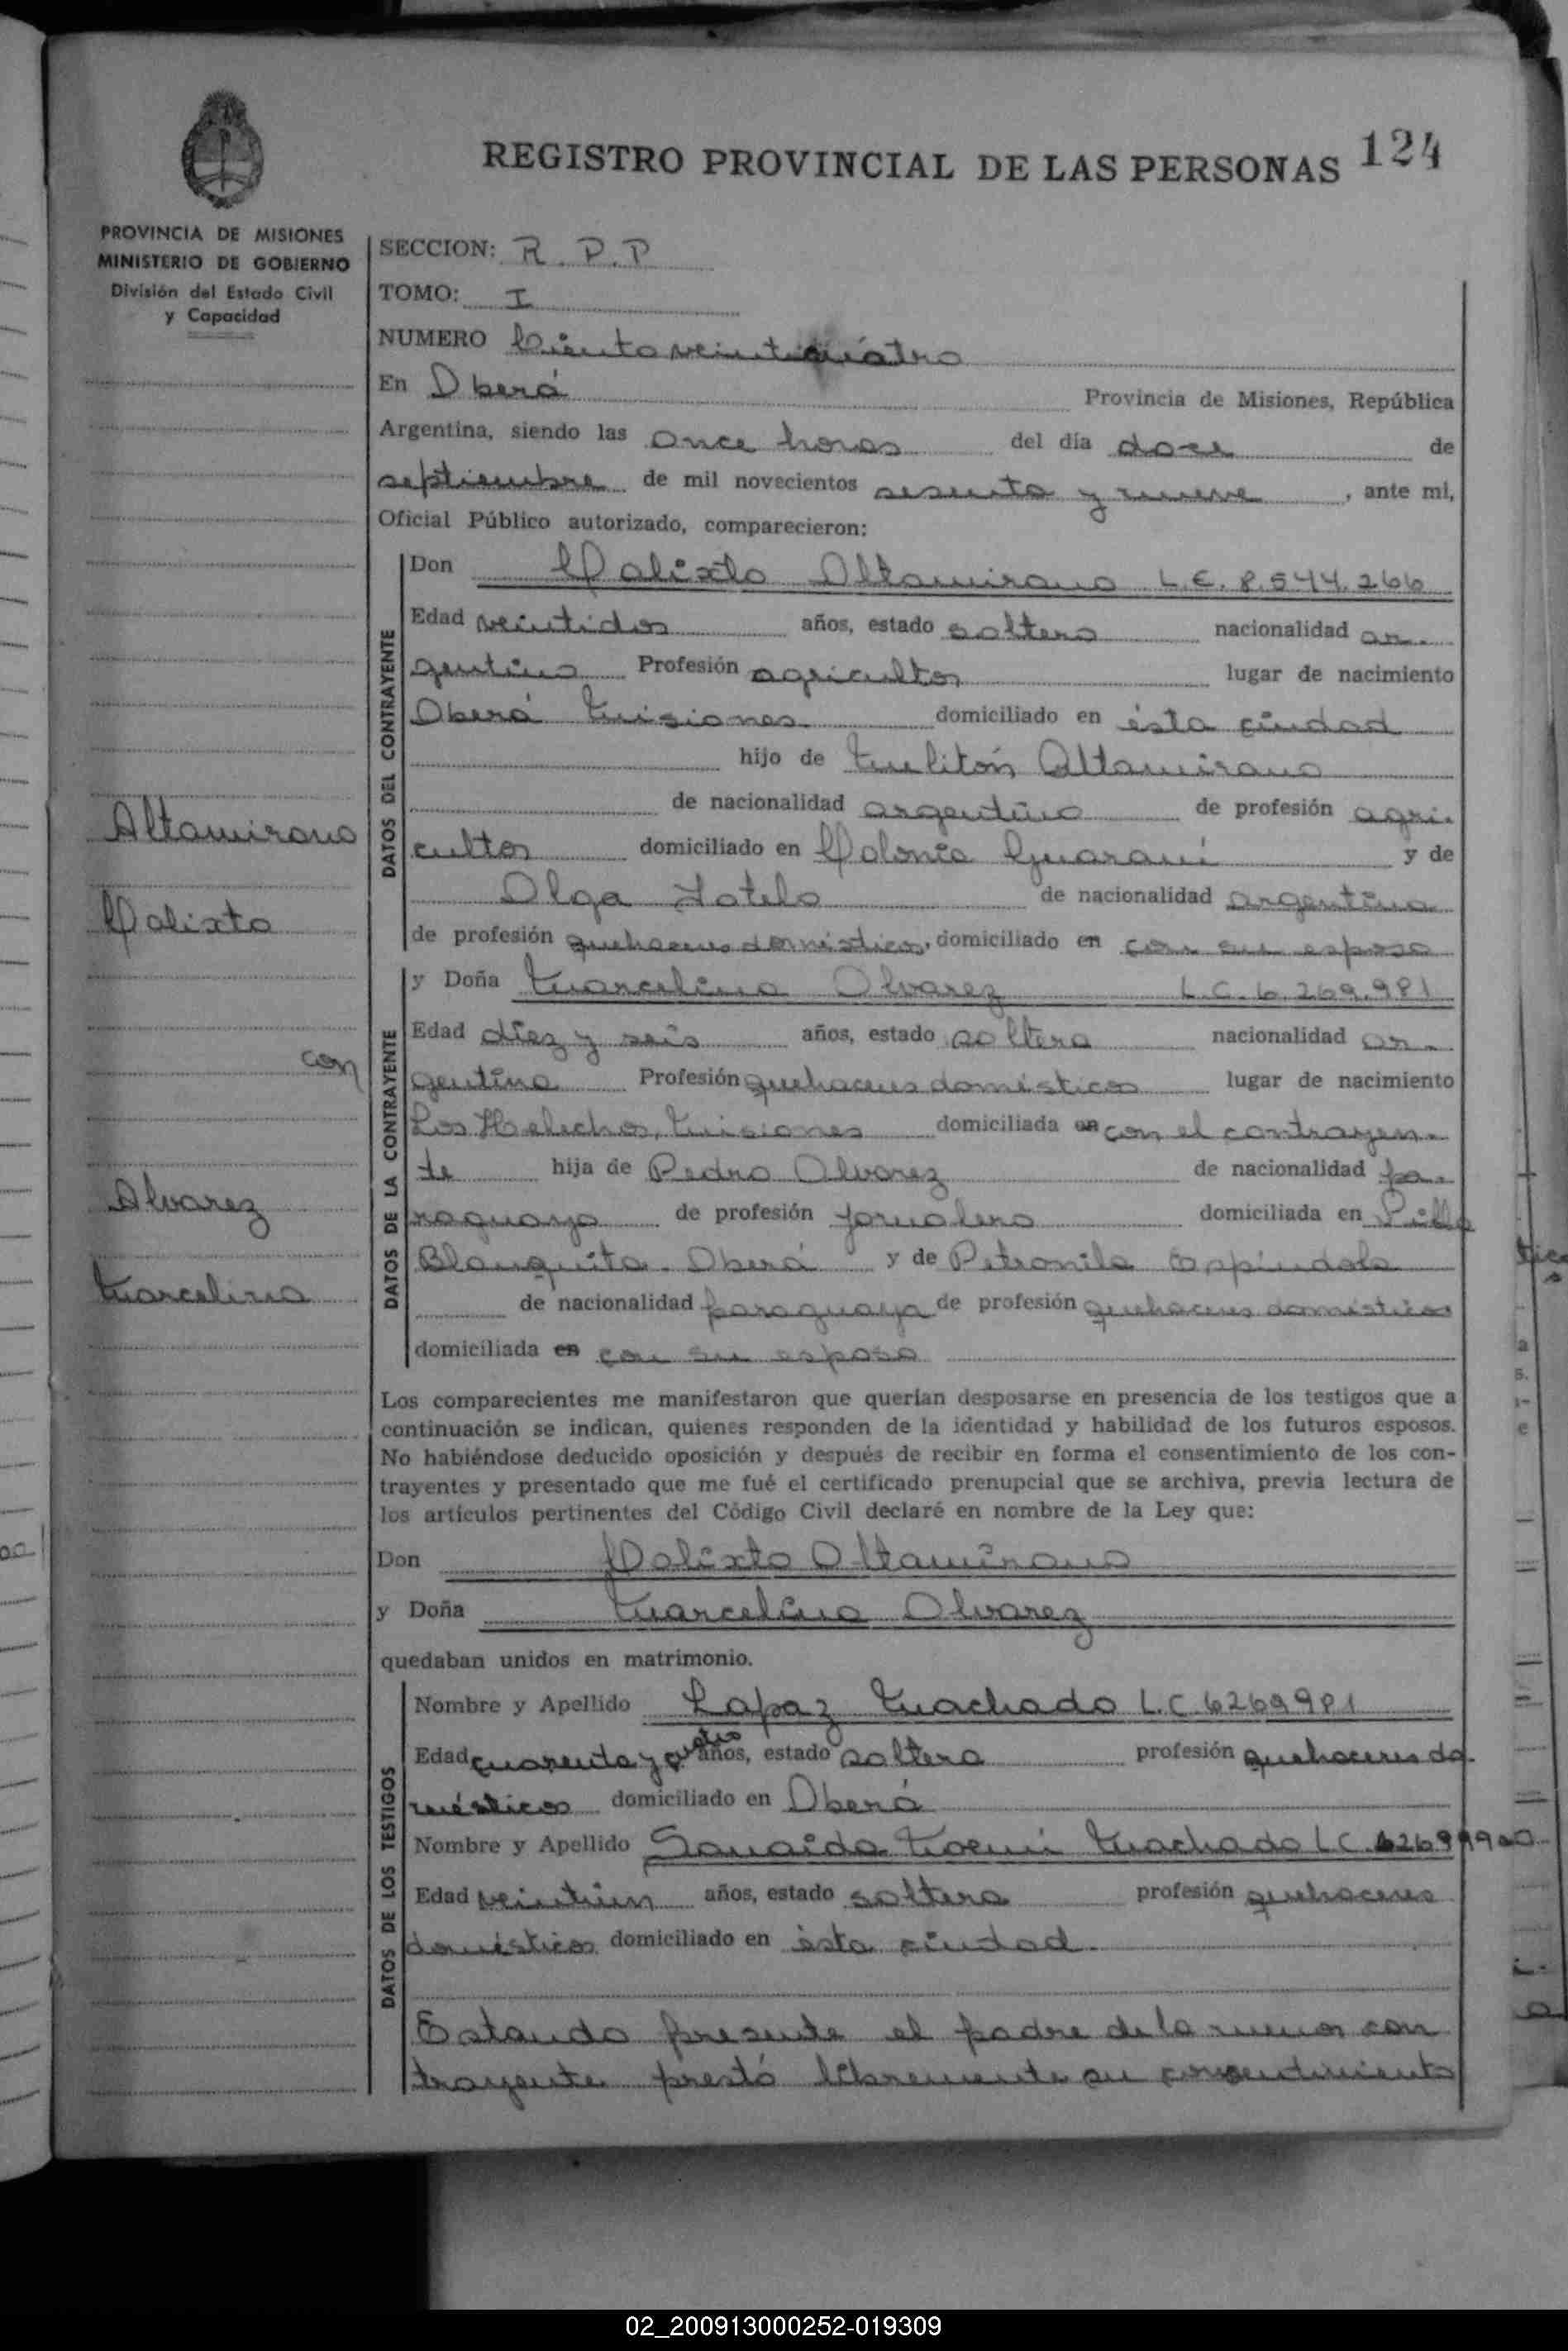 REGISTRO PROVINCIAL DE LAS PERSONAS 124
PROVINCIA DE MISIONES
MINISTERIO DE GOBIERNO
División del Estado Civil
y Capacidad
SECCION: R. P. P
TOMO: I
NUMERO Ciento veinticuatro
En Oberá Provincia de Misiones, República
Argentina, siendo las once horas del día doce de
septiembre de mil novecientos sesenta y nueve, ante mi,
Oficial Público autorizado, comparecieron:
DATOS DEL CONTRAYENTE
Don Calixto Altamirano L.E. 8.544.266
Edad veintidos años, estado soltero nacionalidad ar-
gentino Profesión agricultor lugar de nacimiento
Oberá Misiones domiciliado en ésta ciudad
hijo de Melitón Altamirano
de nacionalidad argentino de profesión agri-
cultor domiciliado en Colonia Guaraní y de
Olga Sotelo de nacionalidad argentina
de profesión quehaceres domésticos, domiciliado en con su esposo
Altamirano
Calixto
con
Alvarez
Marcelina
DATOS DE LA CONTRAYENTE
y Doña Marcelina Alvarez L.C. 6.269.981
Edad diez y seis años, estado soltera nacionalidad ar-
gentina Profesión quehaceres domésticos lugar de nacimiento
Los Helechos, Misiones domiciliada en con el contrayen-
te hija de Pedro Alvarez de nacionalidad pa-
raguaya de profesión jornalero domiciliada en Villa
Blanquita - Oberá y de Petronila Espíndola
de nacionalidad paraguaya de profesión quehaceres domésticos
domiciliada en con su esposo
Los comparecientes me manifestaron que querían desposarse en presencia de los testigos que a
continuación se indican, quienes responden de la identidad y habilidad de los futuros esposos.
No habiéndose deducido oposición y después de recibir en forma el consentimiento de los con-
trayentes y presentado que me fué el certificado prenupcial que se archiva, previa lectura de
los artículos pertinentes del Código Civil declaré en nombre de la Ley que:
Don Calixto Altamirano
y Doña Marcelina Alvarez
quedaban unidos en matrimonio.
DATOS DE LOS TESTIGOS
Nombre y Apellido Lapaz Machado L.C. 6269981
Edad cuarenta y cuatro años, estado soltera profesión quehaceres do-
mésticos domiciliado en Oberá
Nombre y Apellido Noemi Machado LC.
Edad veintiún años, estado soltera profesión quehaceres
domésticos domiciliado en ésta ciudad.
Estando presente el padre de la menor con
trayente prestó libremente su consentimiento
02_200913000252-019309